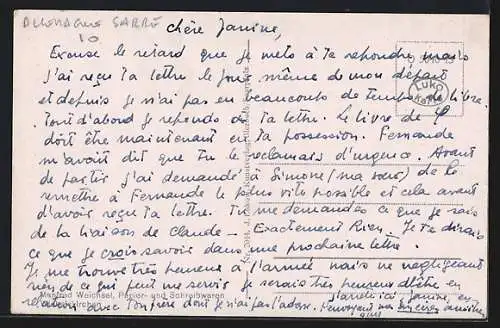 ALLEMAGNE SARRE
10
Chère Janine,
Excuse le retard que je mets à te répondre, mais
j'ai reçu ta lettre le jour même de mon départ
et depuis je n'ai pas eu beaucoup de temps de libre.
Tout d'abord je réponds à ta lettre. Le livre de
doit être maintenant en ta possession. Fernande
m'avait dit que tu le réclamais d'urgence. Avant
de partir j'ai demandé à Simone (ma sœur) de le
remettre à Fernande le plus vite possible et cela avant
d'avoir reçu ta lettre. Tu me demandes ce que je sais
de la liaison de Claude - Exactement Rien. Je te dirais
ce que je crois savoir dans une prochaine lettre.
Je me trouve très heureux à l'armée mais ne négligeant
rien de ce qui peut me servir je serais très heureux d'être en
relation avec ton frère dont je n'ai pas l'adresse.
j'arrête ici Janine, en
Luko
Karte
Manfred Weichsel, Papier- und Schreibwaren